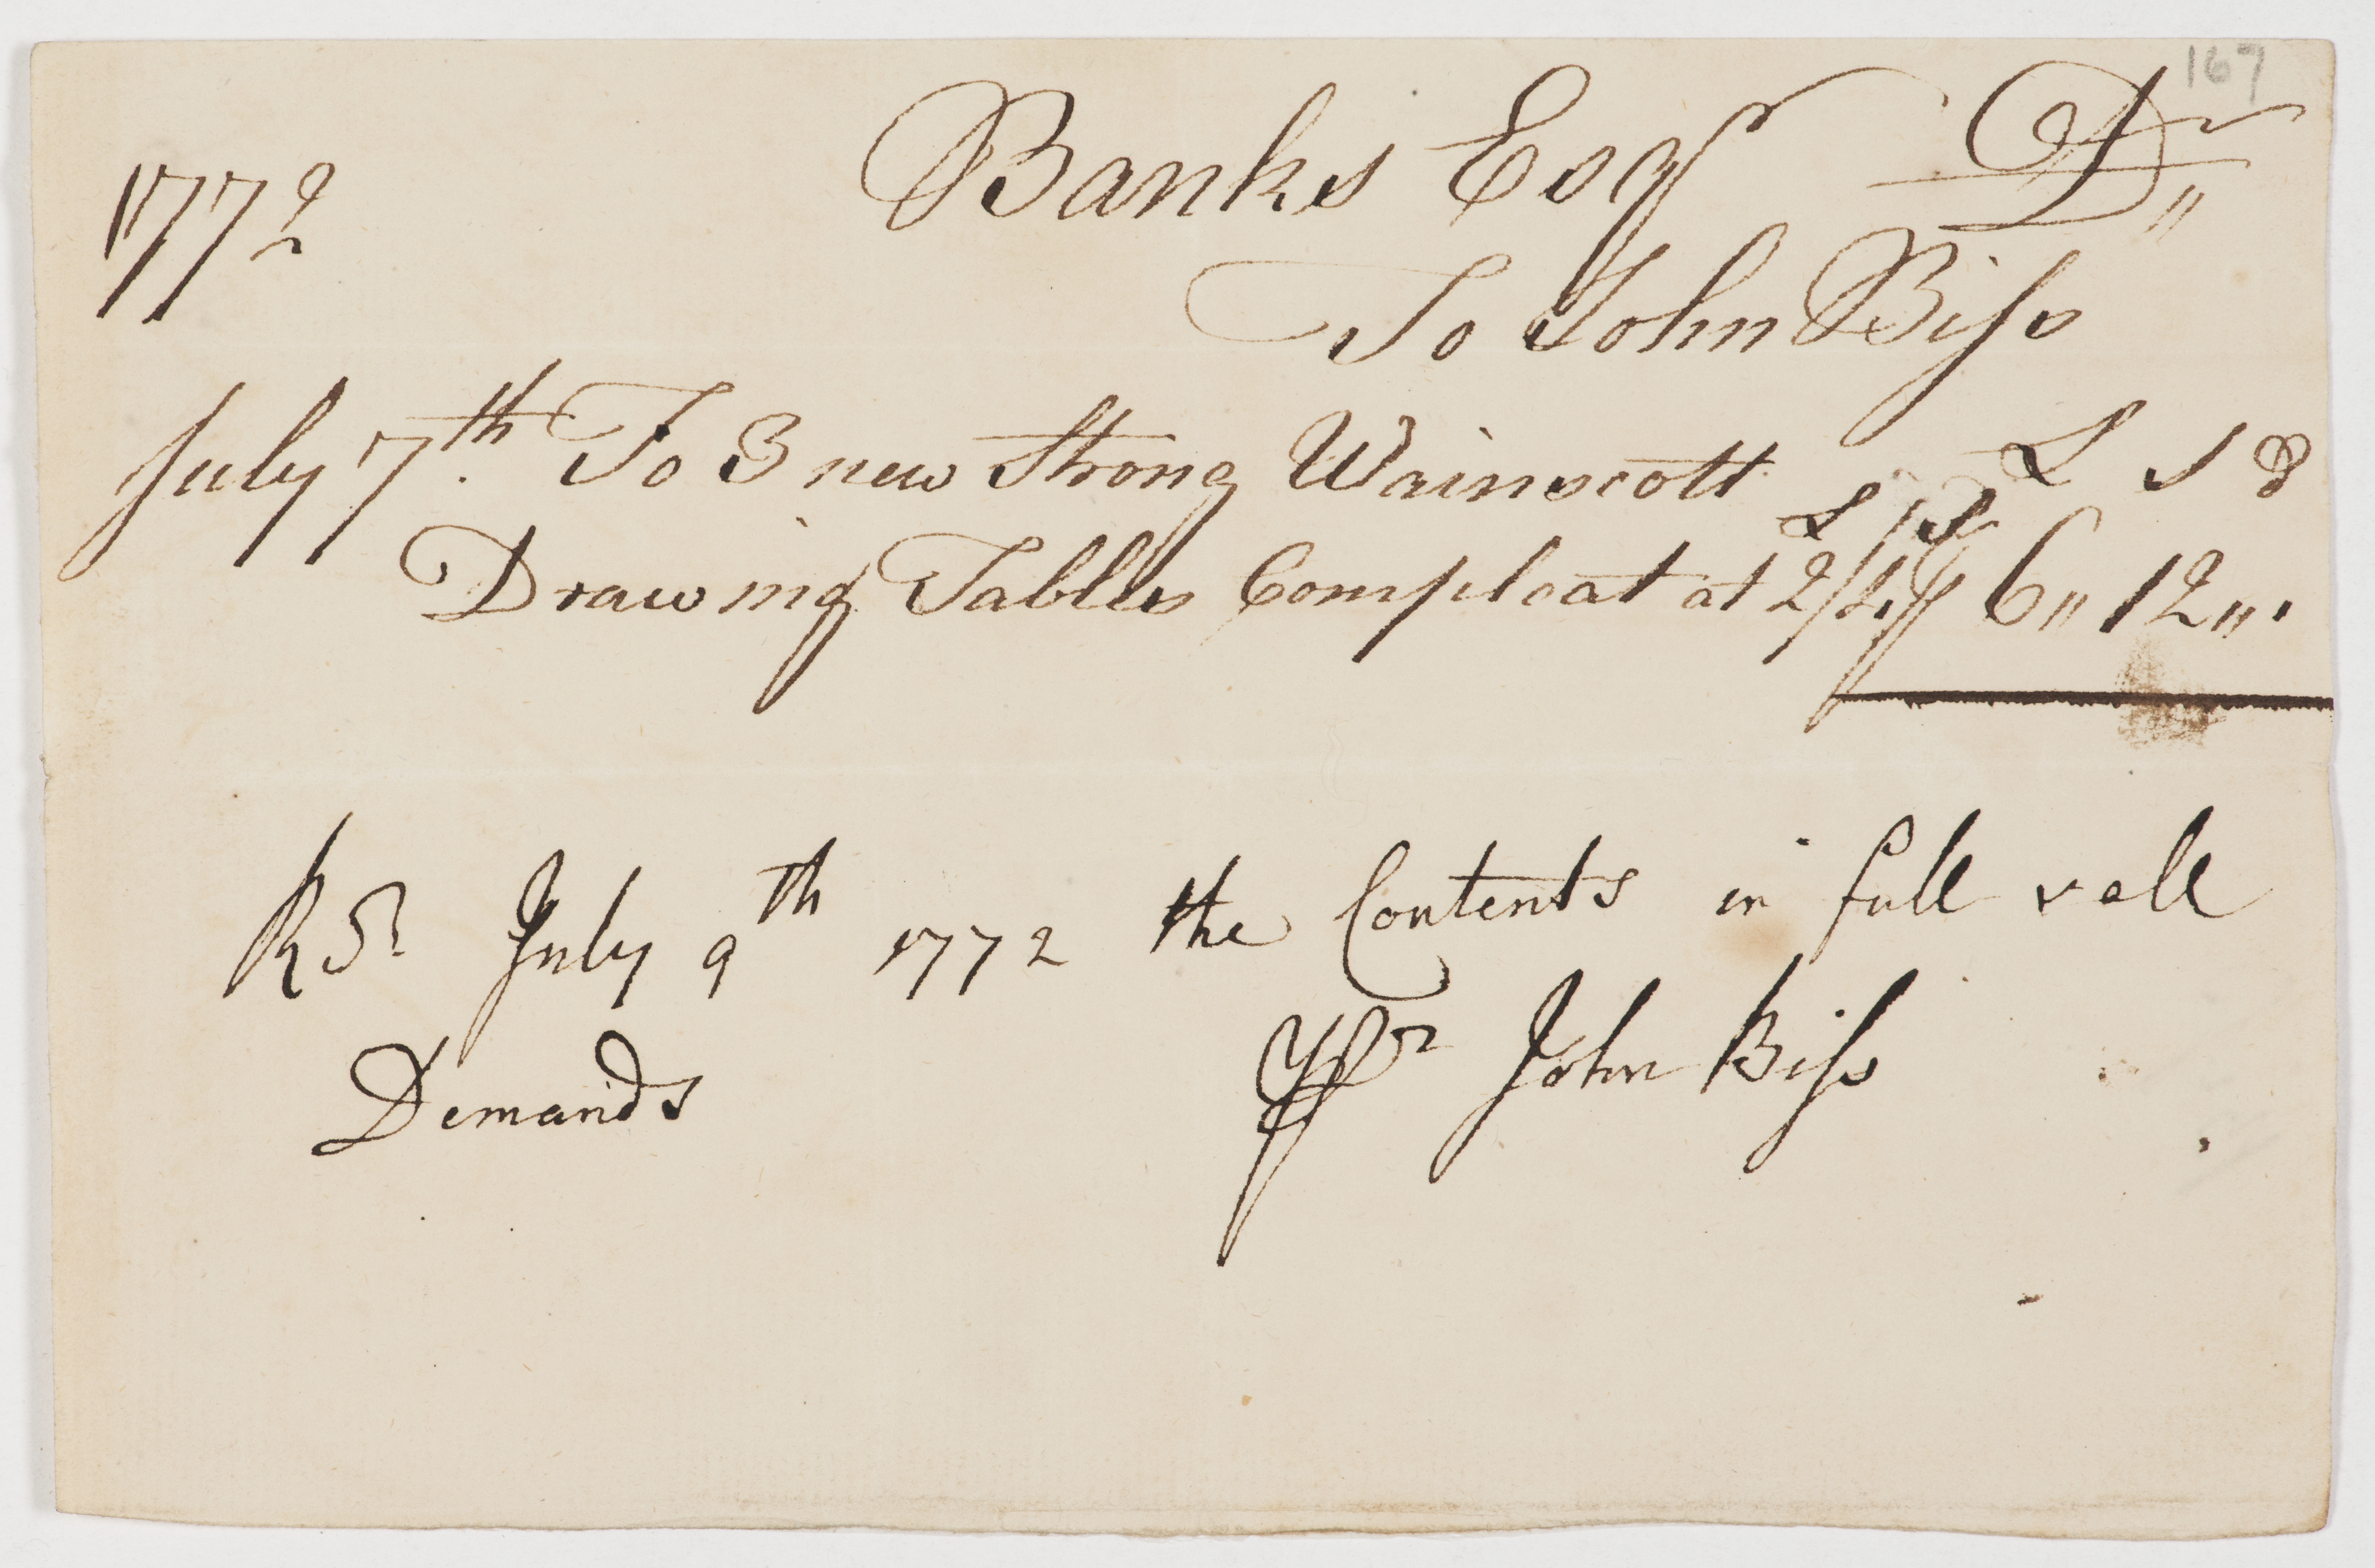 167
Banks Esqr Dr"
1772
To John Biss
July 7th. To 3 new Strong Wainscott
L S D
L S
Drawing Tables Compleat at 2/4 6" 12"'
Rd July 9th 1772 the Contents in full & all
Demands
Pr John Biss